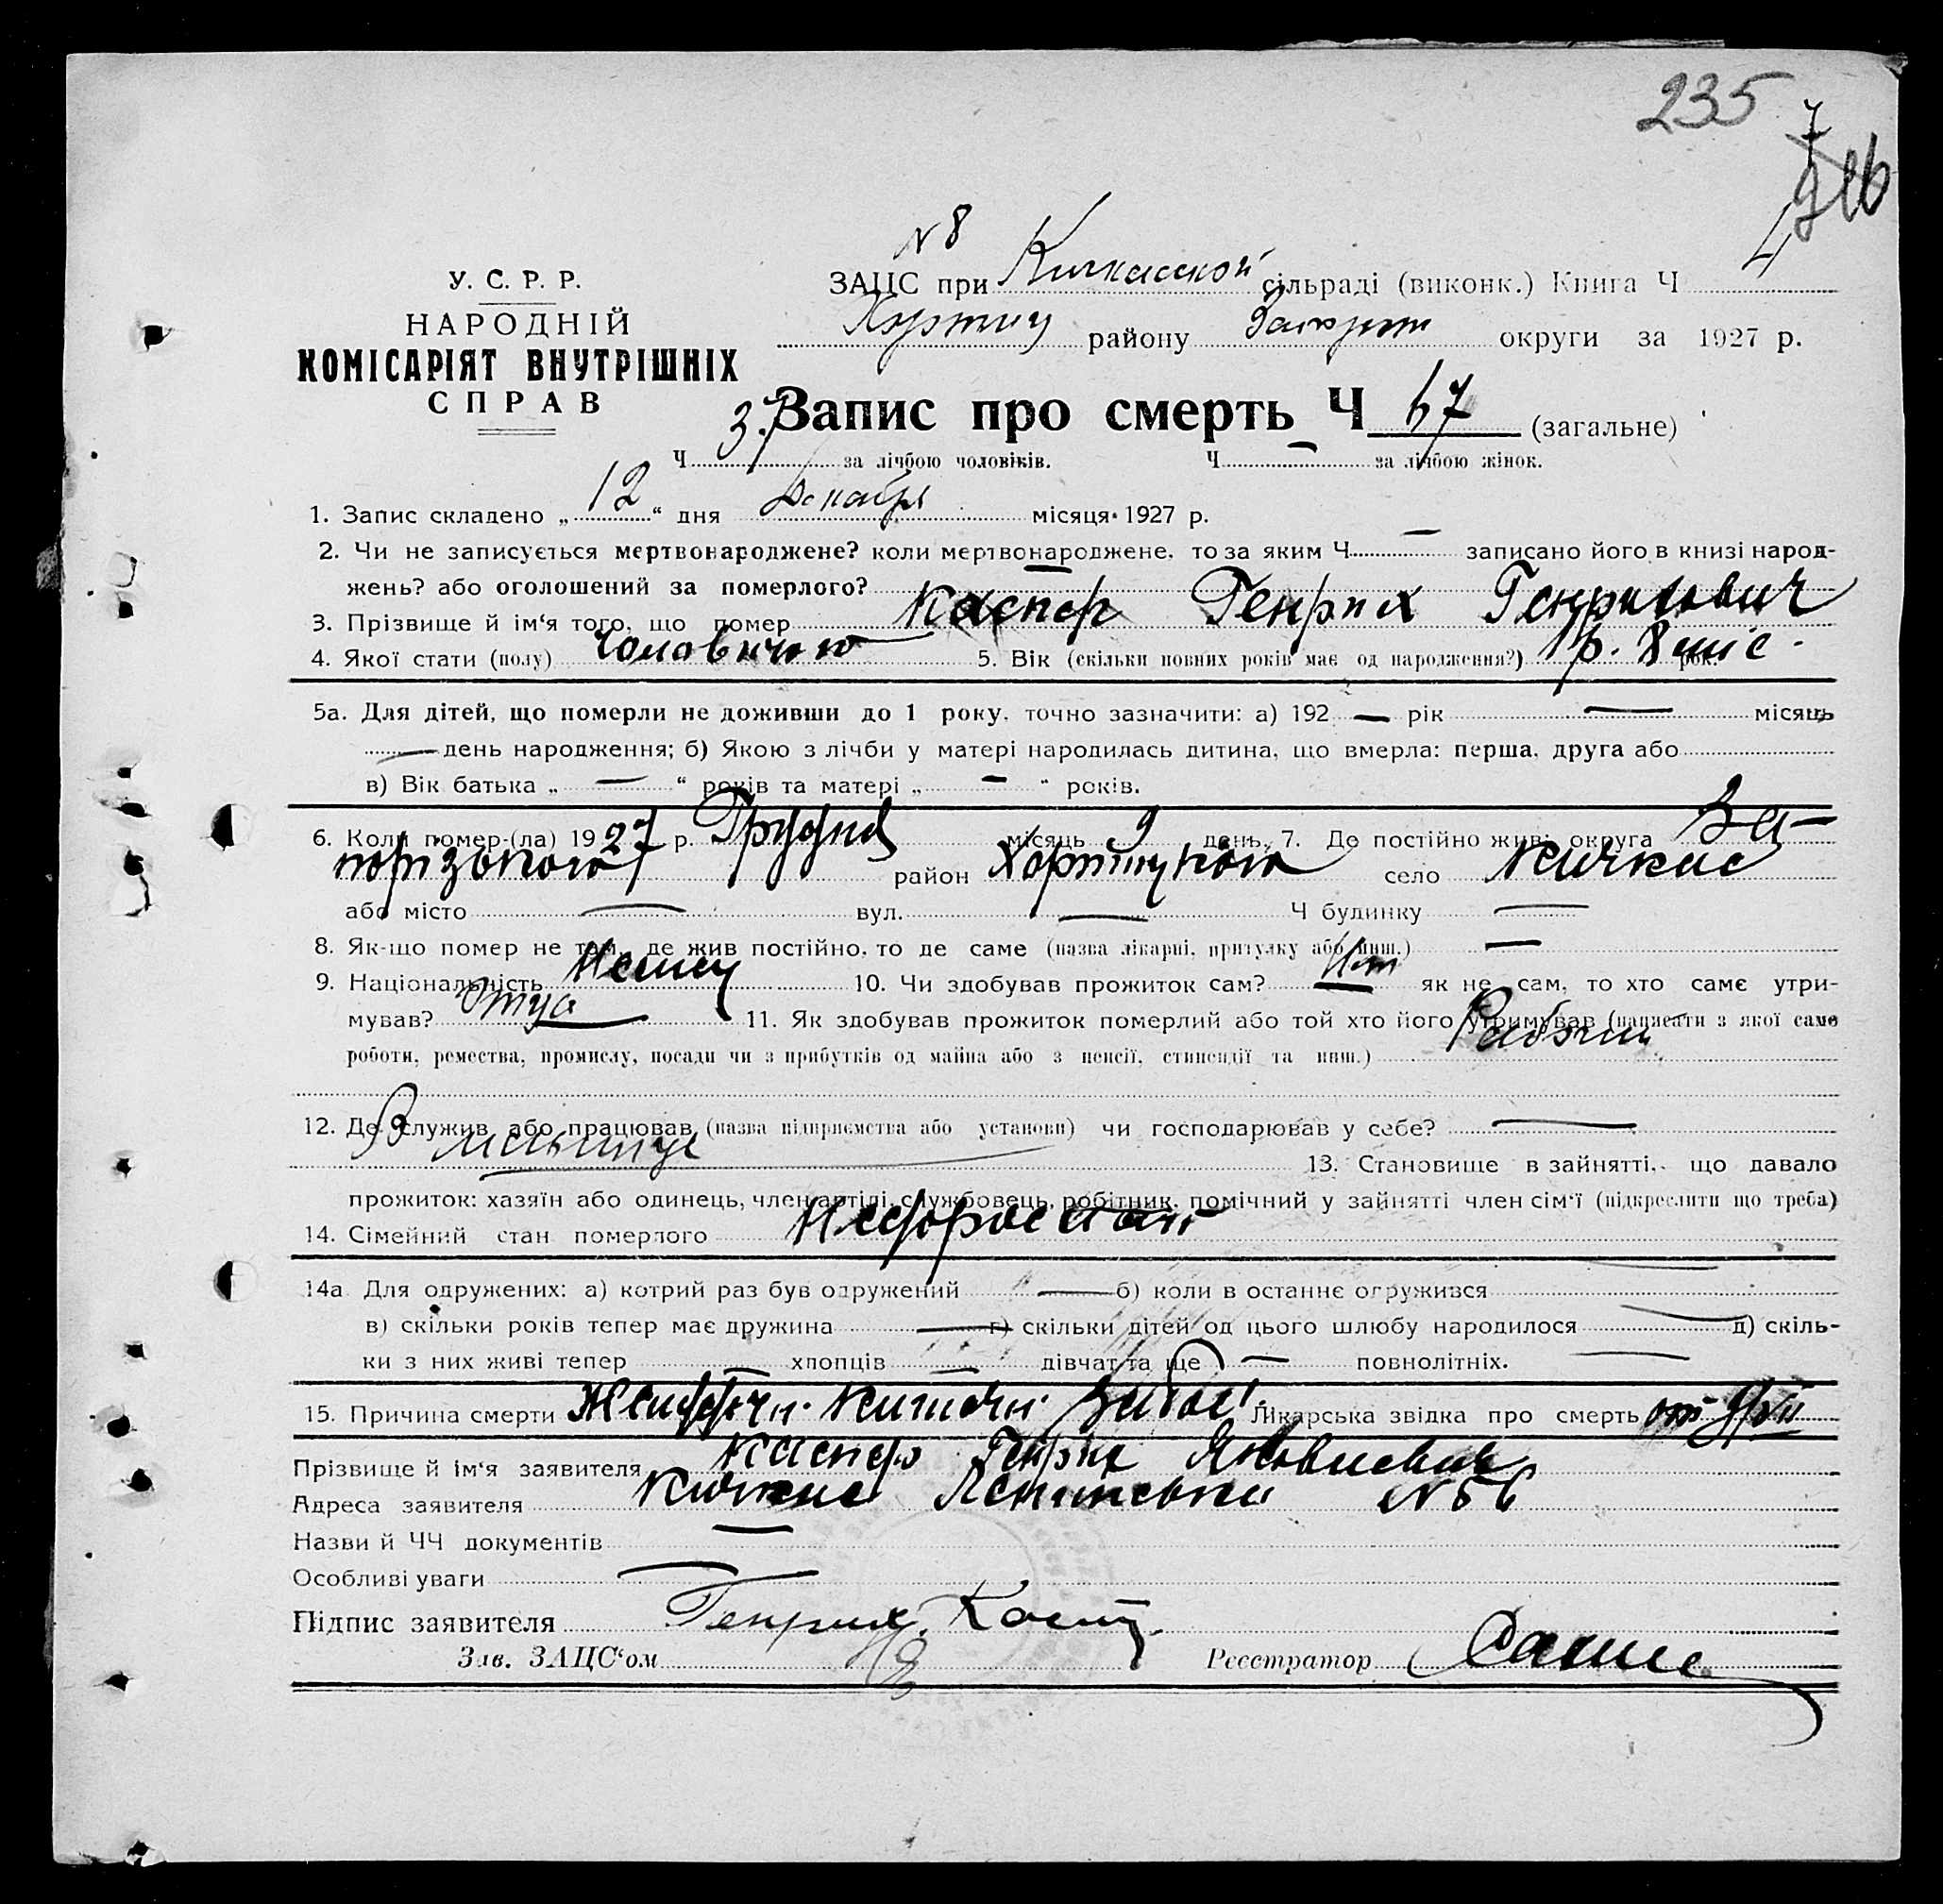 235
N 8
У. С. Р. Р.
НАРОДНІЙ
КОМІСАРІЯТ ВНУТРІШНІХ
СПРАВ
ЗАЦС при Кичкасской сільраді (виконк.) Книга Ч 4
Хортиц району Запориж округи за 1927 р.
Запис про смерть Ч 67 (загальне)
Ч 37 за лічбою чоловіків. Ч — за лічбою жінок.
1. Запис складено „ 12 “ дня Декабря місяця 1927 р.
2. Чи не записується мертвонароджене? коли мертвонароджене, то за яким Ч — записано його в книзі народ-
жень? або оголошений за померлого? —
3. Прізвище й ім‘я того, що помер Каспер Генрих Генрихович
4. Якої стати (полу) чоловичою 5. Вік (скільки повних років має од народження?) 1 р. 8 міс. рок.
5а. Для дітей, що померли не доживши до 1 року, точно зазначити: а) 192 — рік — місяць
— день народження; б) Якою з лічби у матері народилась дитина, що вмерла: перша, друга або
в) Вік батька „ — “ років та матері „ — “ років.
6. Коли помер-(ла) 1927 р. Грудня місяць 9 день, 7. Де постійно жив: округа За-
порізького район Хортицького село Кичкас
або місто — вул. — Ч будинку —
8. Як-що помер не там, де жив постійно, то де саме (назва лікарні, притулку або инш.) —
9. Національність Немец 10. Чи здобував прожиток сам? Нет як не сам, то хто саме утри-
мував? Отца 11. Як здобував прожиток померлий або той хто його утримував (написати з якої саме
роботи, ремества, промислу, посади чи з прибутків од майна або з пенсії, стипендії та инш.) Рабочий
12. Де служив або працював (назва підприємства або установи) чи господарював у себе? —
В 13. Становище в зайнятті, що давало
прожиток: хазяїн або одинець, член артілі, службовець, робітник, помічний у зайнятті член сім‘ї (підкреслити що треба)
14. Сімейний стан померлого
14а Для одружених: а) котрий раз був одружений — б) коли в останнє одружився
в) скільки років тепер має дружина — г) скільки дітей од цього шлюбу народилося — д) скіль-
ки з них живі тепер — хлопців — дівчат та ще — повнолітніх.
15. Причина смерти Лікарська звідка про смерть
Прізвище й ім‘я заявителя Каспер Генрих Яковлевич
Адреса заявителя Кичкас N 56
Назви й ЧЧ документів —
Особливі уваги —
Підпис заявителя Генрих Касп
Зав. ЗАЦС‘ом Реєстратор